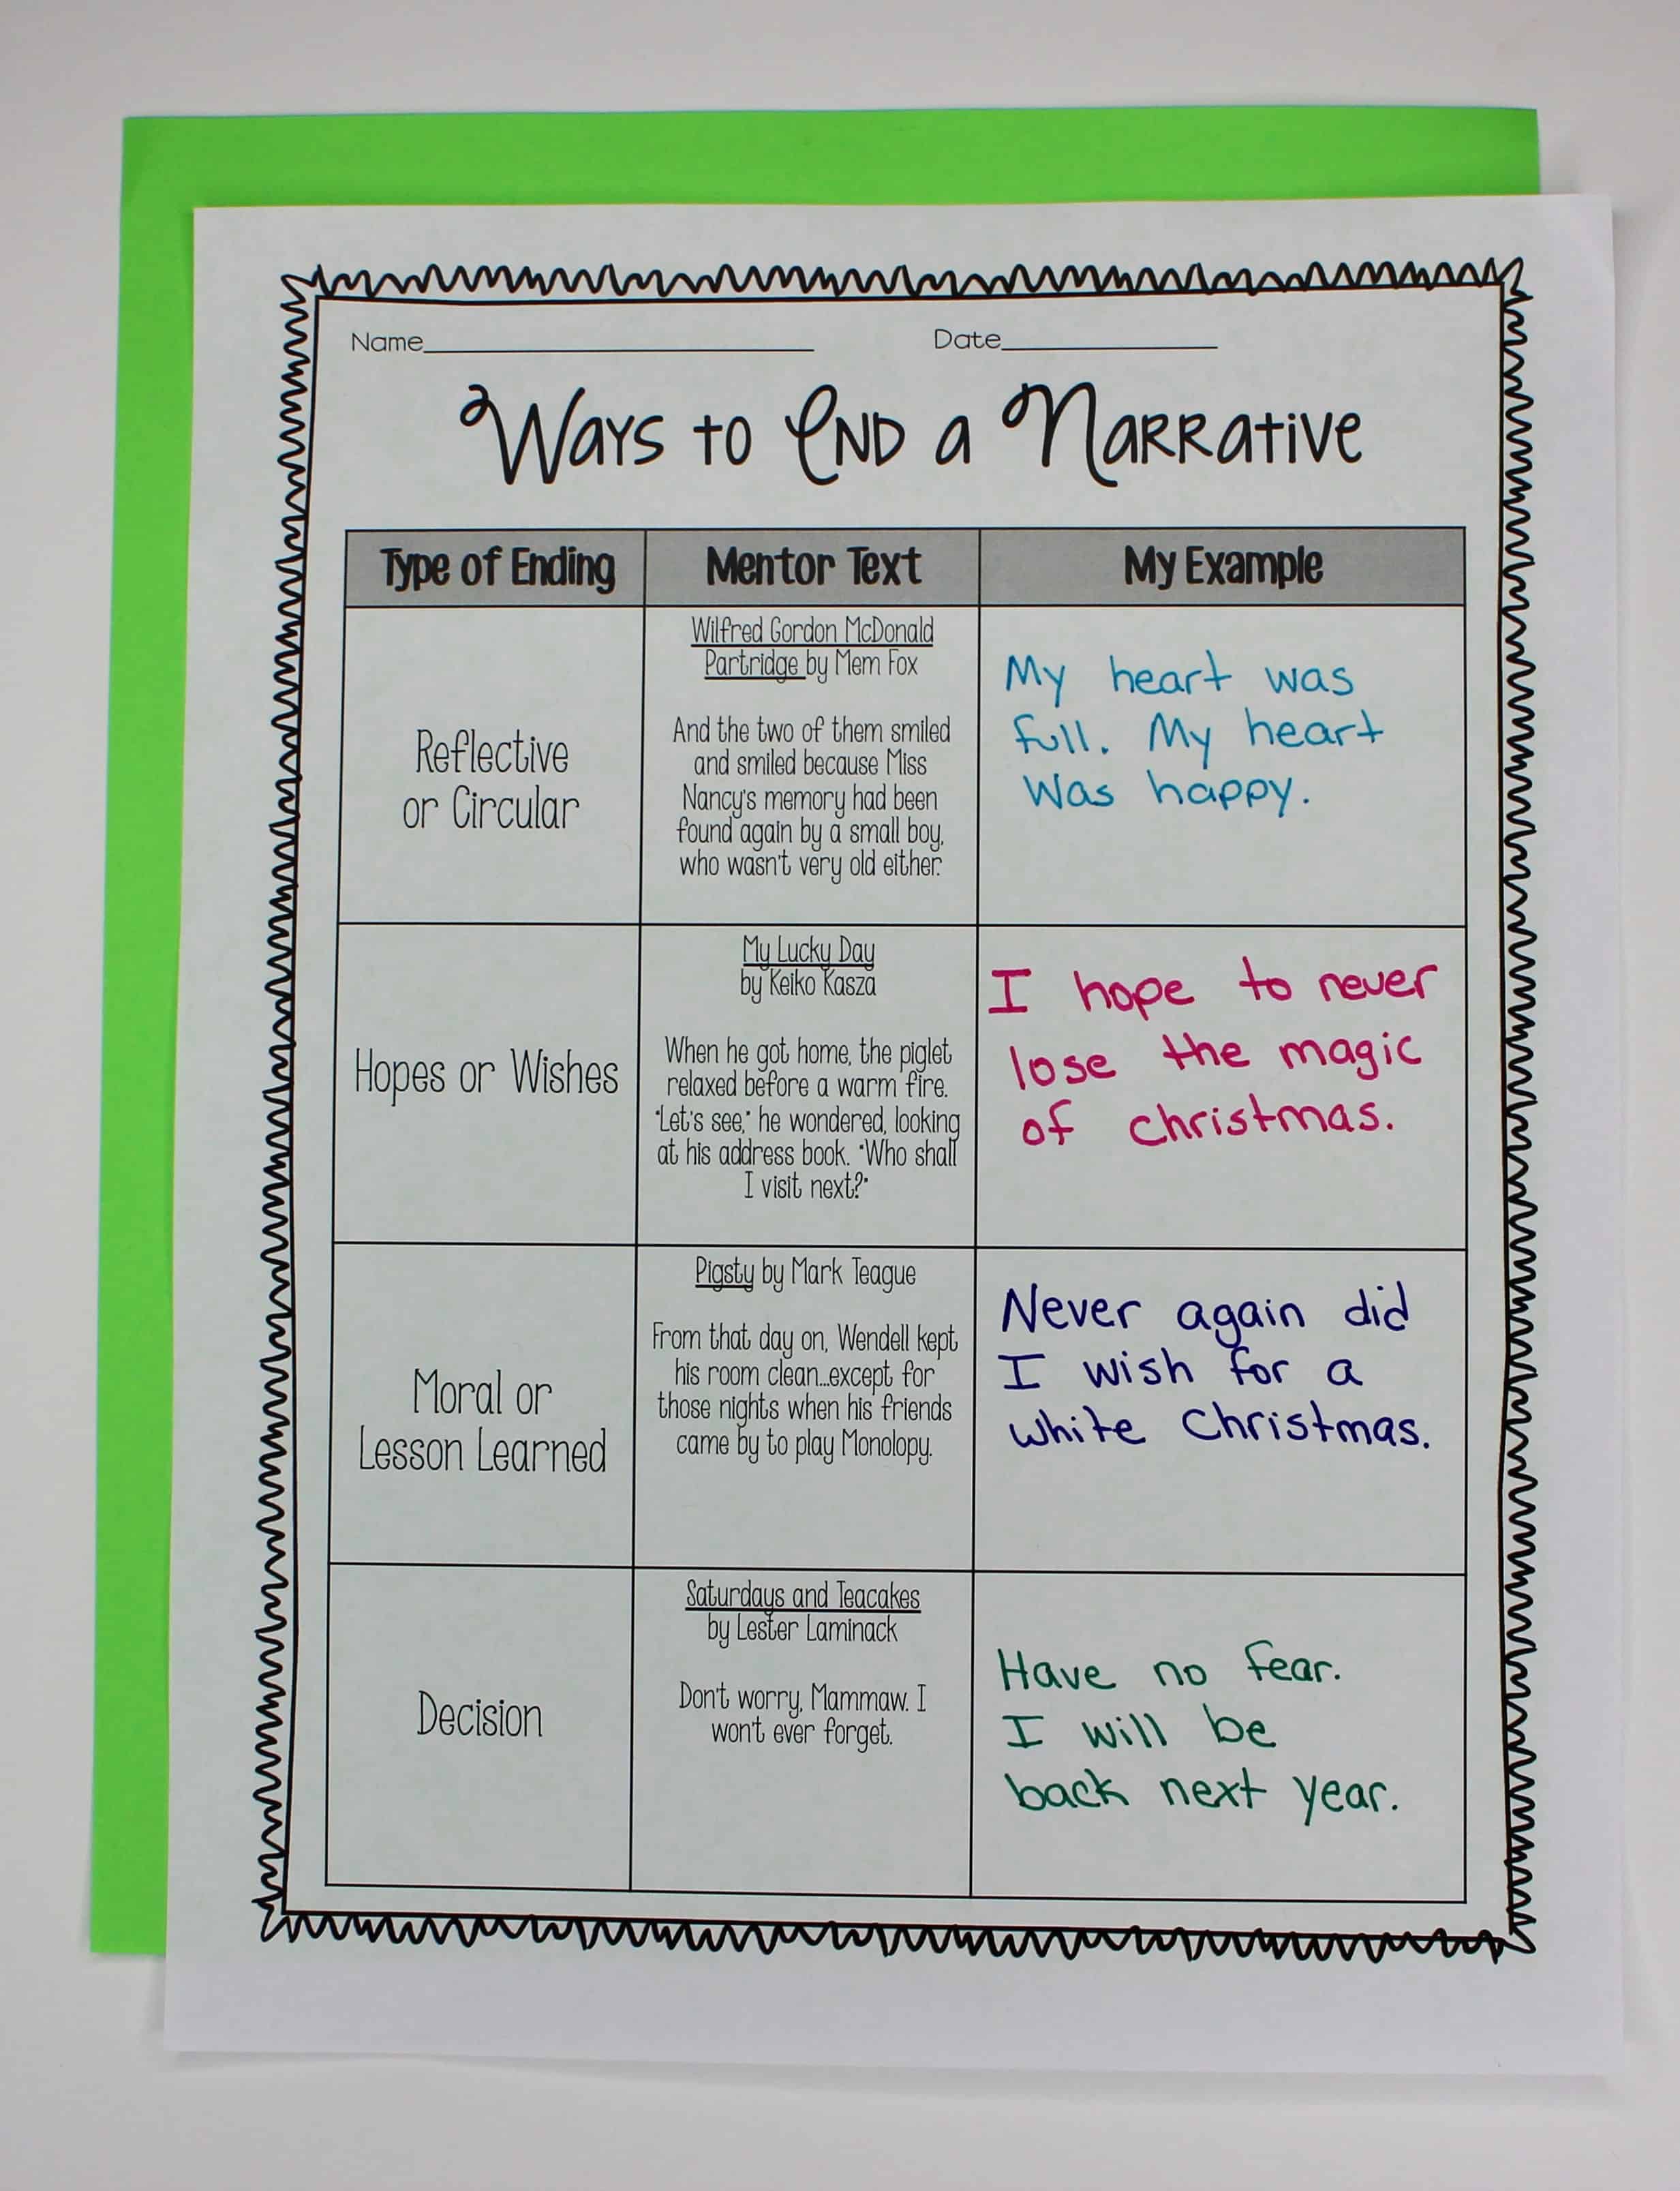 Name Date
Ways to End a Narrative
Type of Ending Mentor Text My Example
Reflective
or Circular
Wilfred Gordon McDonald
Partridge by Mem Fox
And the two of them smiled
and smiled because Miss
Nancy's memory had been
found again by a small boy,
who wasn't very old either.
My heart was
full. My heart
was happy.
Hopes or Wishes
My Lucky Day
by Keiko Kasza
When he got home, the piglet
relaxed before a warm fire.
"Let's see," he wondered, looking
at his address book. "Who shall
I visit next?"
I hope to never
lose the magic
of christmas.
Moral or
Lesson Learned
Pigsty by Mark Teague
From that day on, Wendell kept
his room clean...except for
those nights when his friends
came by to play Monolopy.
Never again did
I wish for a
white Christmas.
Decision
Saturdays and Teacakes
by Lester Laminack
Don't worry, Mammaw. I
won't ever forget.
Have no fear.
I will be
back next year.